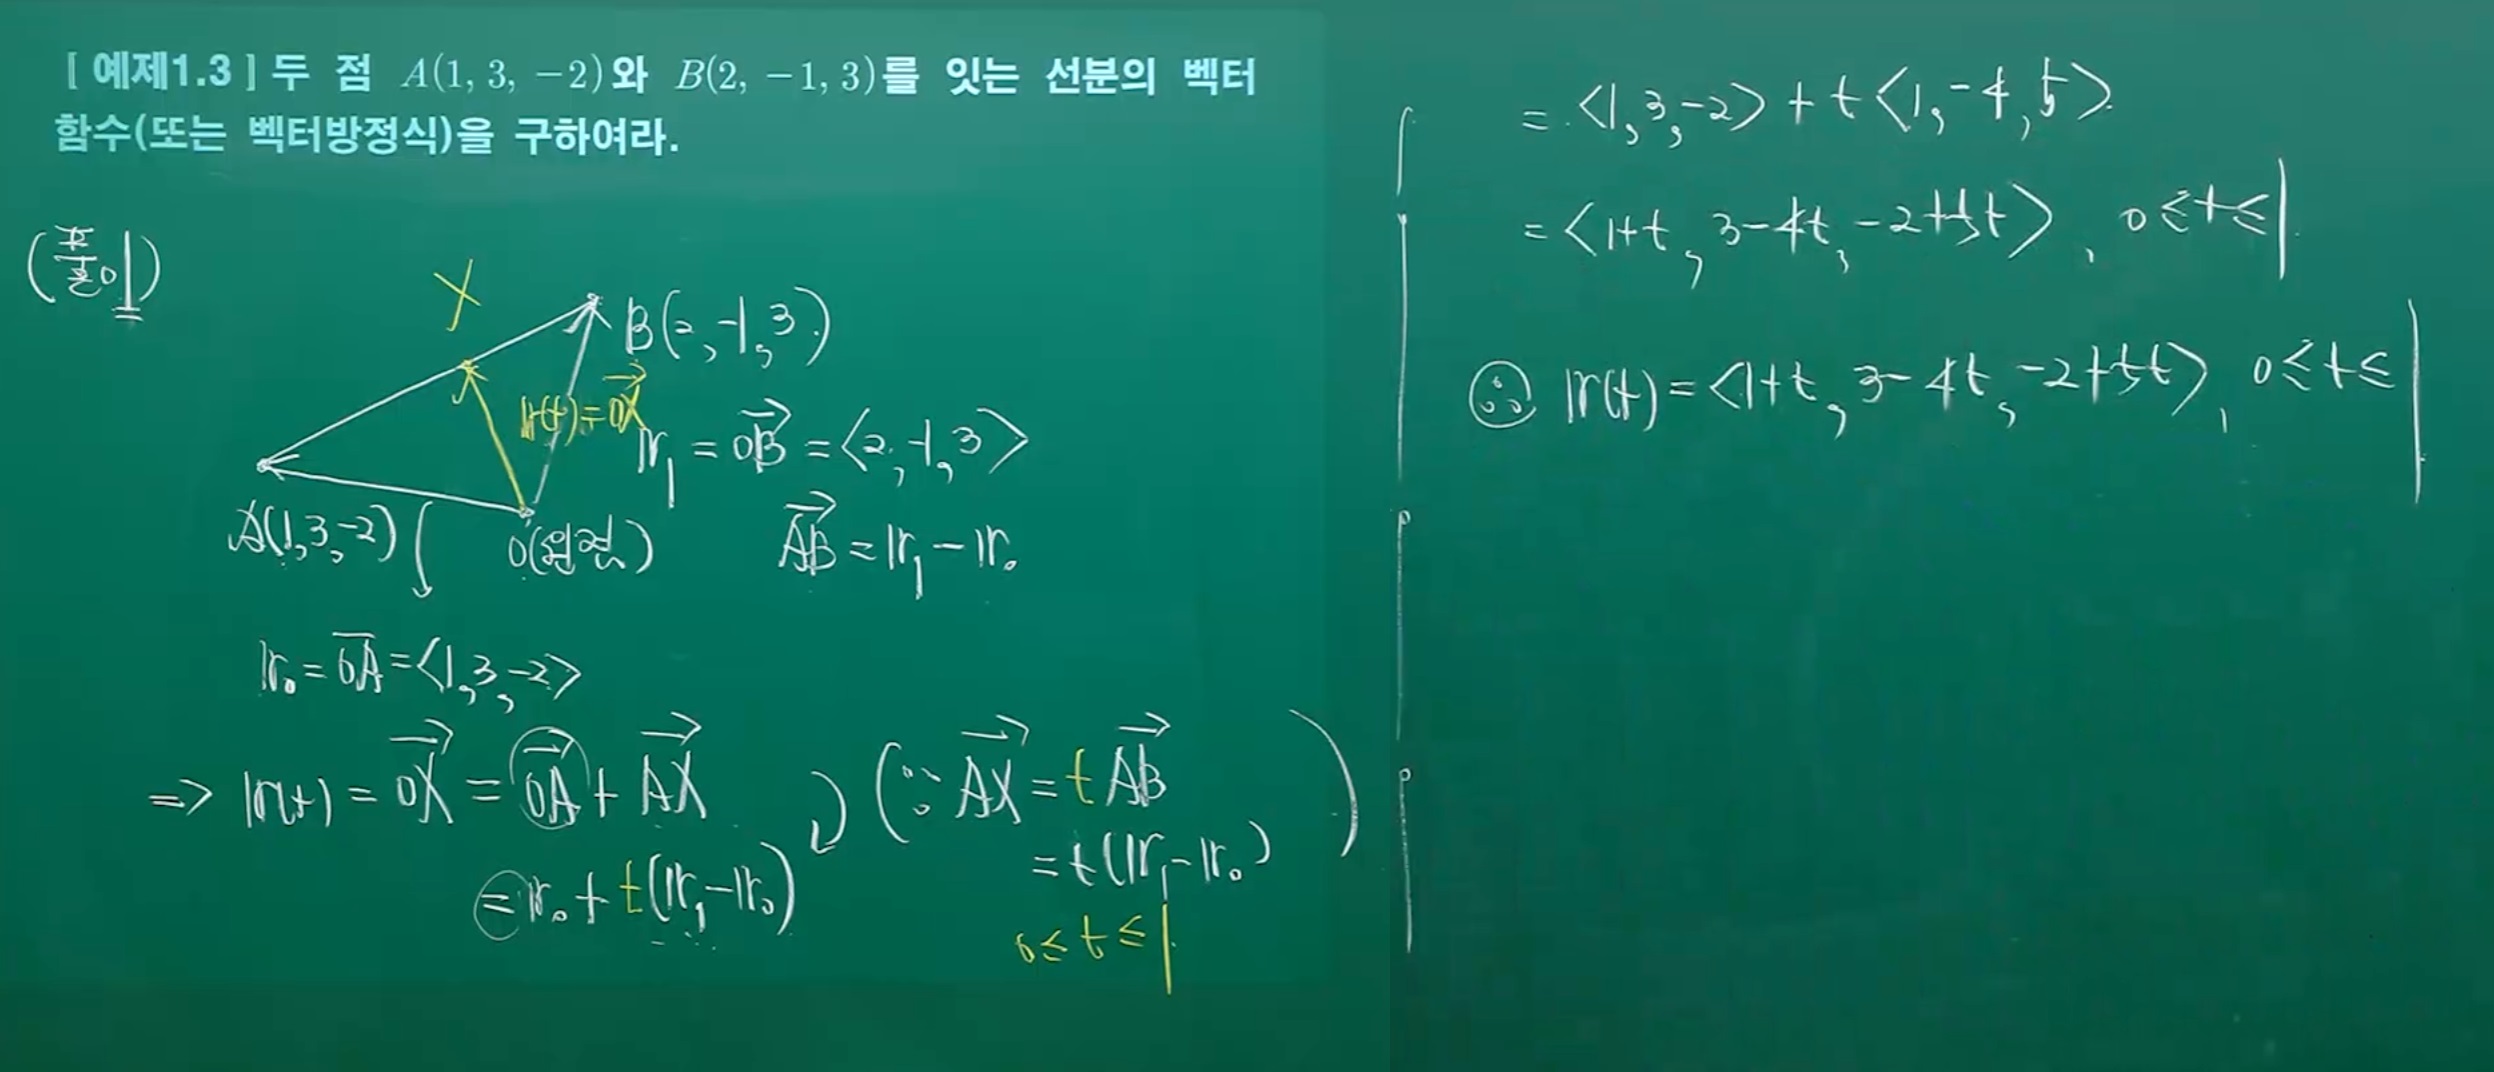 [ 예제1.3 ] 두 점 A(1, 3, −2)와 B(2, −1, 3)를 잇는 선분의 벡터
함수(또는 벡터방정식)을 구하여라.
(풀이)
X
B(2, -1, 3)
r(t) = OX
r₁ = OB = <2, -1, 3>
A(1, 3, -2)
O(원점)
AB = r₁ - r₀
r₀ = OA = <1, 3, -2>
=> r(t) = OX = OA + AX
(∵ AX = t AB
= r₀ + t(r₁ - r₀)
= t(r₁ - r₀) )
0 ≤ t ≤ 1
= <1, 3, -2> + t<1, -4, 5>
= <1+t, 3-4t, -2+5t>, 0 ≤ t ≤ 1
∴ r(t) = <1+t, 3-4t, -2+5t>, 0 ≤ t ≤ 1